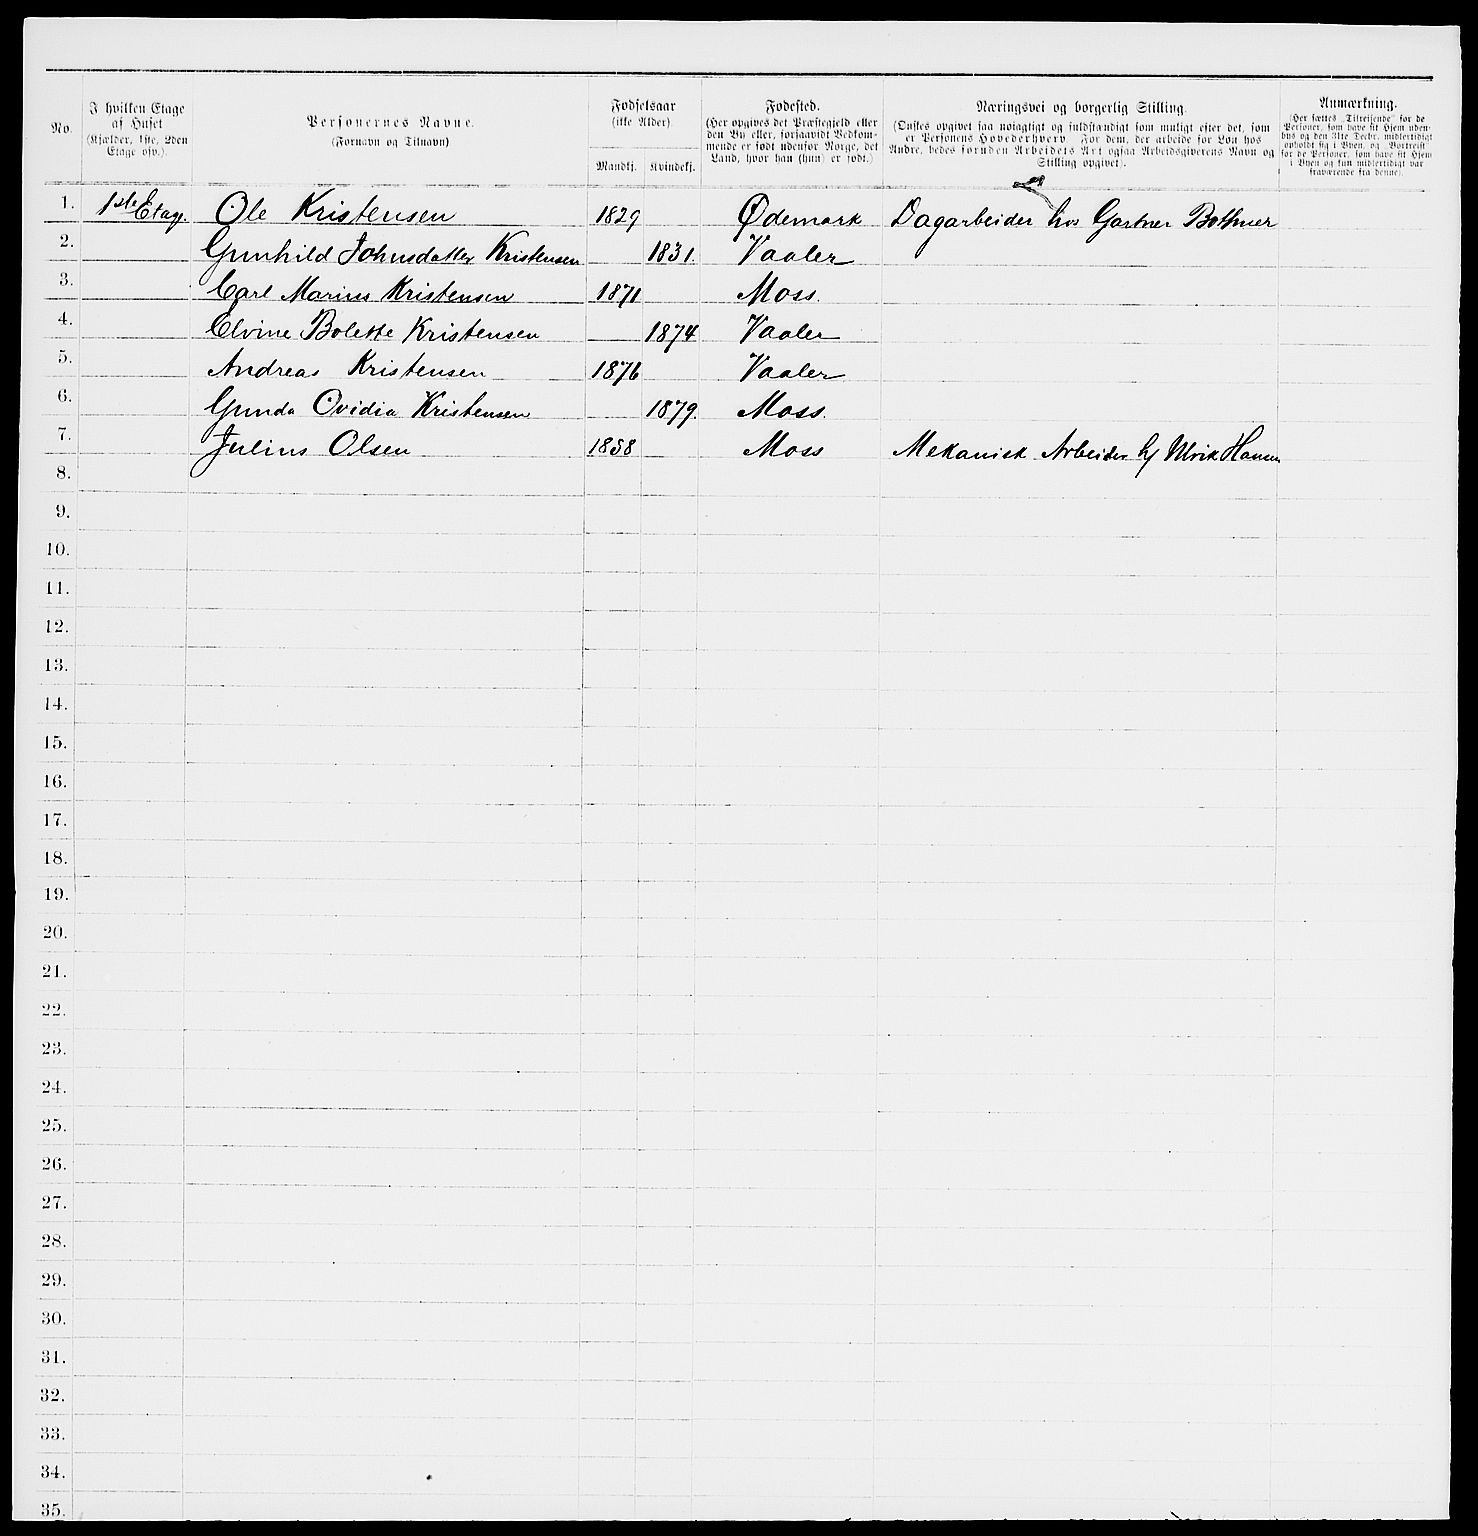 No.
I hvilken Etage
af Huset
(Kjælder, 1ste, 2den
Etage osv.).
Personernes Navne.
(Fornavn og Tilnavn)
Fødselsaar
(ikke Alder).
Mandkj. Kvindekj.
Fødested.
(Her opgives det Præstegjeld eller
den By eller, forsaavidt Vedkom-
mende er født udenfor Norge, det
Land, hvor han (hun) er født.)
Næringsvei og borgerlig Stilling.
(Ønskes opgivet saa nøiagtigt og fuldstændigt som muligt efter det, som
er Personens Hovederhverv For dem, der arbeide for Løn hos
Andre, bedes foruden Arbeidets Art ogsaa Arbeidsgiverens Navn og
Stilling opgivet).
Anmærkning.
(Her sættes „Tilreisende" for de
Personer, som have sit Hjem uden-
bys og den 31te Decbr. midlertidigt
opholdt sig i Byen, og „Bortreist"
for de Personer, som have sit Hjem
i Byen og kun midlertidigt var
fraværende fra denne).
1. 1ste Etag. Ole Kristensen 1829 Ødemark Dagarbeider hos Gartner Bothner
2. Gunhild Johnsdatter Kristensen 1831. Vaaler
3. Carl Marius Kristensen 1871 Moss.
4. Elvine Bolette Kristensen 1874 Vaaler
5. Andreas Kristensen 1876 Vaaler
6. Gunda Ovidia Kristensen 1879. Moss.
7. Julius Olsen 1858 Moss Mekanisk Arbeider h/ Ulrik Hansen
8.
9.
10.
11.
12.
13.
14.
15.
16.
17.
18.
19.
20.
21.
22.
23.
24.
25.
26.
27.
28.
29.
30.
31.
32.
33.
34.
35.